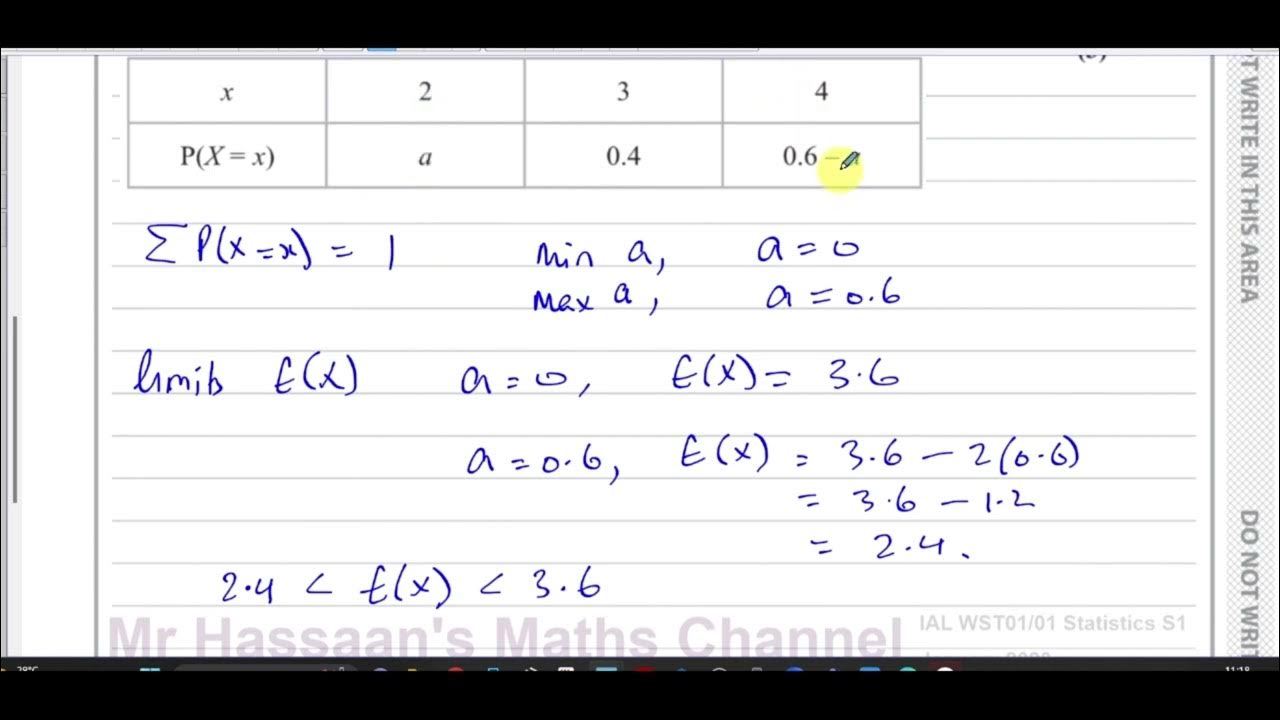 x 2 3 4
P(X = x) a 0.4 0.6 –
Σ P(X=x) = 1 min a, a = 0
max a, a = 0.6
limits E(X) a = 0, E(X) = 3.6
a = 0.6, E(X) = 3.6 – 2(0.6)
= 3.6 – 1.2
= 2.4.
2.4 < E(X) < 3.6
Mr Hassaan's Maths Channel
IAL WST01/01 Statistics S1
OT WRITE IN THIS AREA
DO NOT WRIT
28°C
11:18